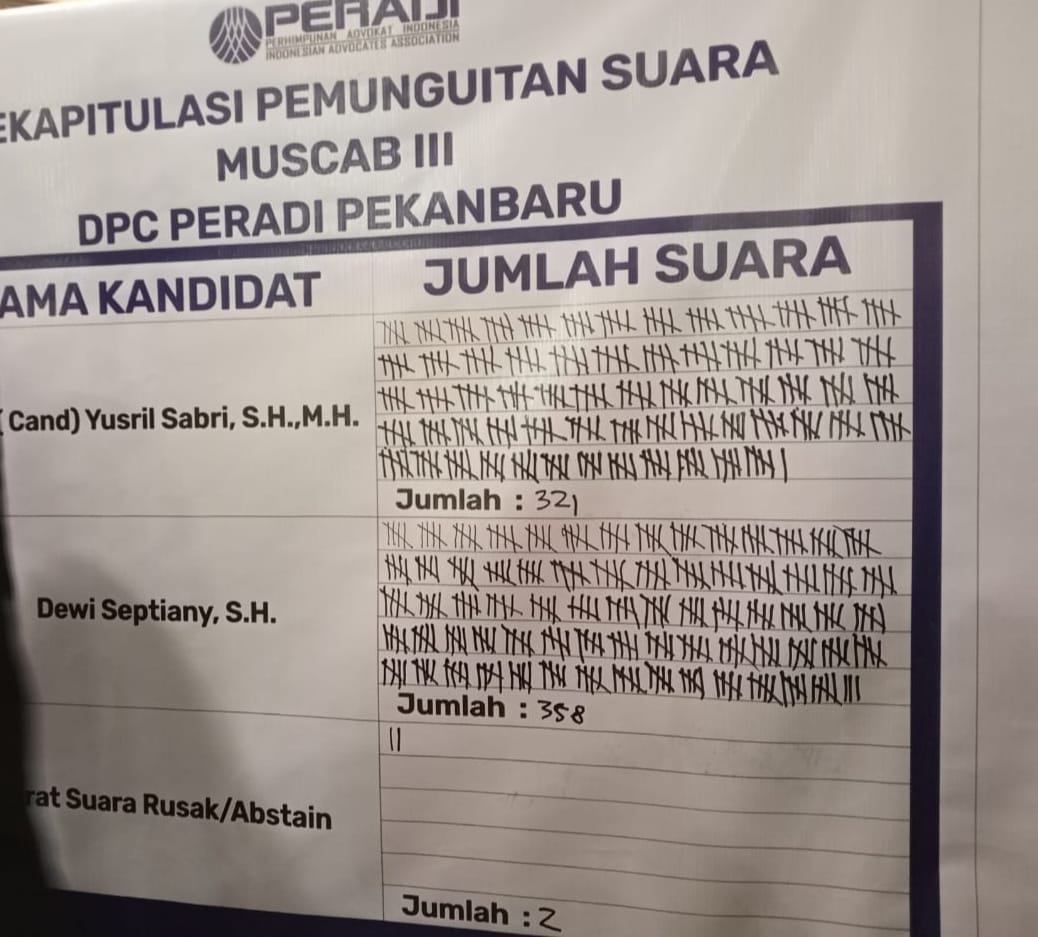 PERADI
PERHIMPUNAN ADVOKAT INDONESIA
INDONESIAN ADVOCATES ASSOCIATION
EKAPITULASI PEMUNGUITAN SUARA
MUSCAB III
DPC PERADI PEKANBARU
AMA KANDIDAT JUMLAH SUARA
( Cand) Yusril Sabri, S.H.,M.H.
Jumlah : 321
Dewi Septiany, S.H.
Jumlah : 358
||
rat Suara Rusak/Abstain
Jumlah : 2